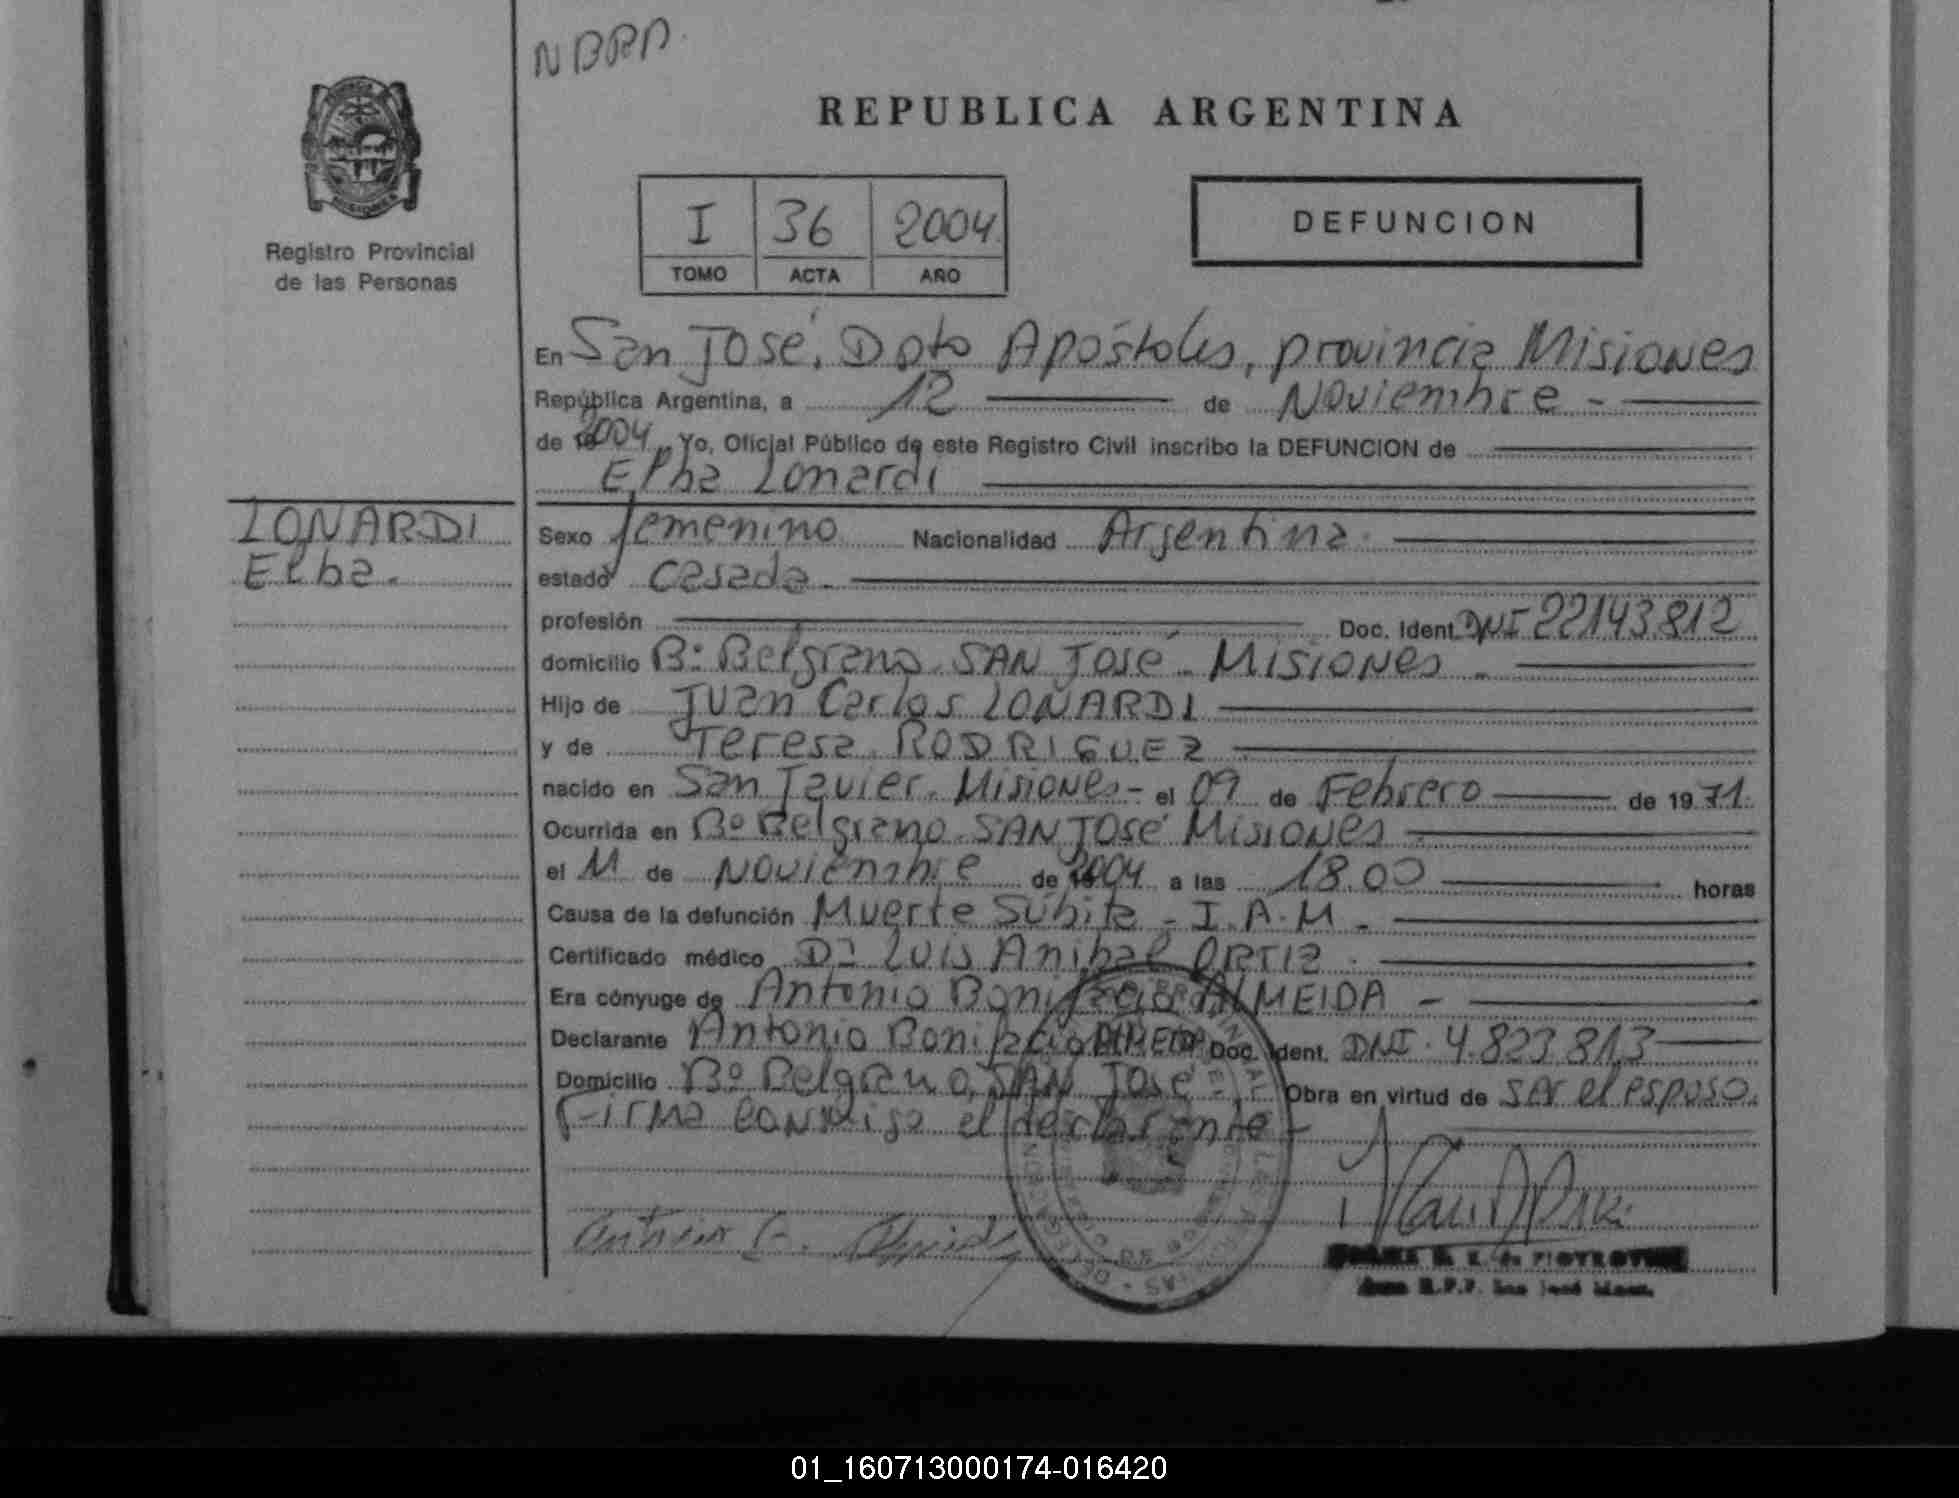 NBRD.
REPUBLICA ARGENTINA
I 36 2004
TOMO ACTA AÑO
DEFUNCION
Registro Provincial
de las Personas
En San José, Dpto Apóstoles, provincia Misiones
República Argentina, a 12 de Noviembre -
de 2004, Yo, Oficial Público de este Registro Civil inscribo la DEFUNCION de
Elba Lonardi
LONARDI
Elba.
Sexo femenino Nacionalidad Argentina.
estado casada.
profesión Doc. Ident. DNI 22143.812
domicilio B° Belgrano. SAN José - Misiones -
Hijo de Juan Carlos LONARDI
y de Teresa RODRIGUEZ
nacido en San Javier. Misiones - el 09 de Febrero de 1971.
Ocurrida en B° Belgrano SAN José Misiones -
el 11 de Noviembre de 2004 a las 18.00 horas
Causa de la defunción Muerte Súbita - I.A.M. -
Certificado médico Dr Luis Anibal ORTIZ.
Era cónyuge de Antonio Bonifacio ALMEIDA -
Declarante Antonio Bonifacio ALMEIDA Doc. Ident. DNI. 4.823813
Domicilio B° Belgrano, SAN José Obra en virtud de ser el esposo.
Firma conmigo el declarante -
01_160713000174-016420